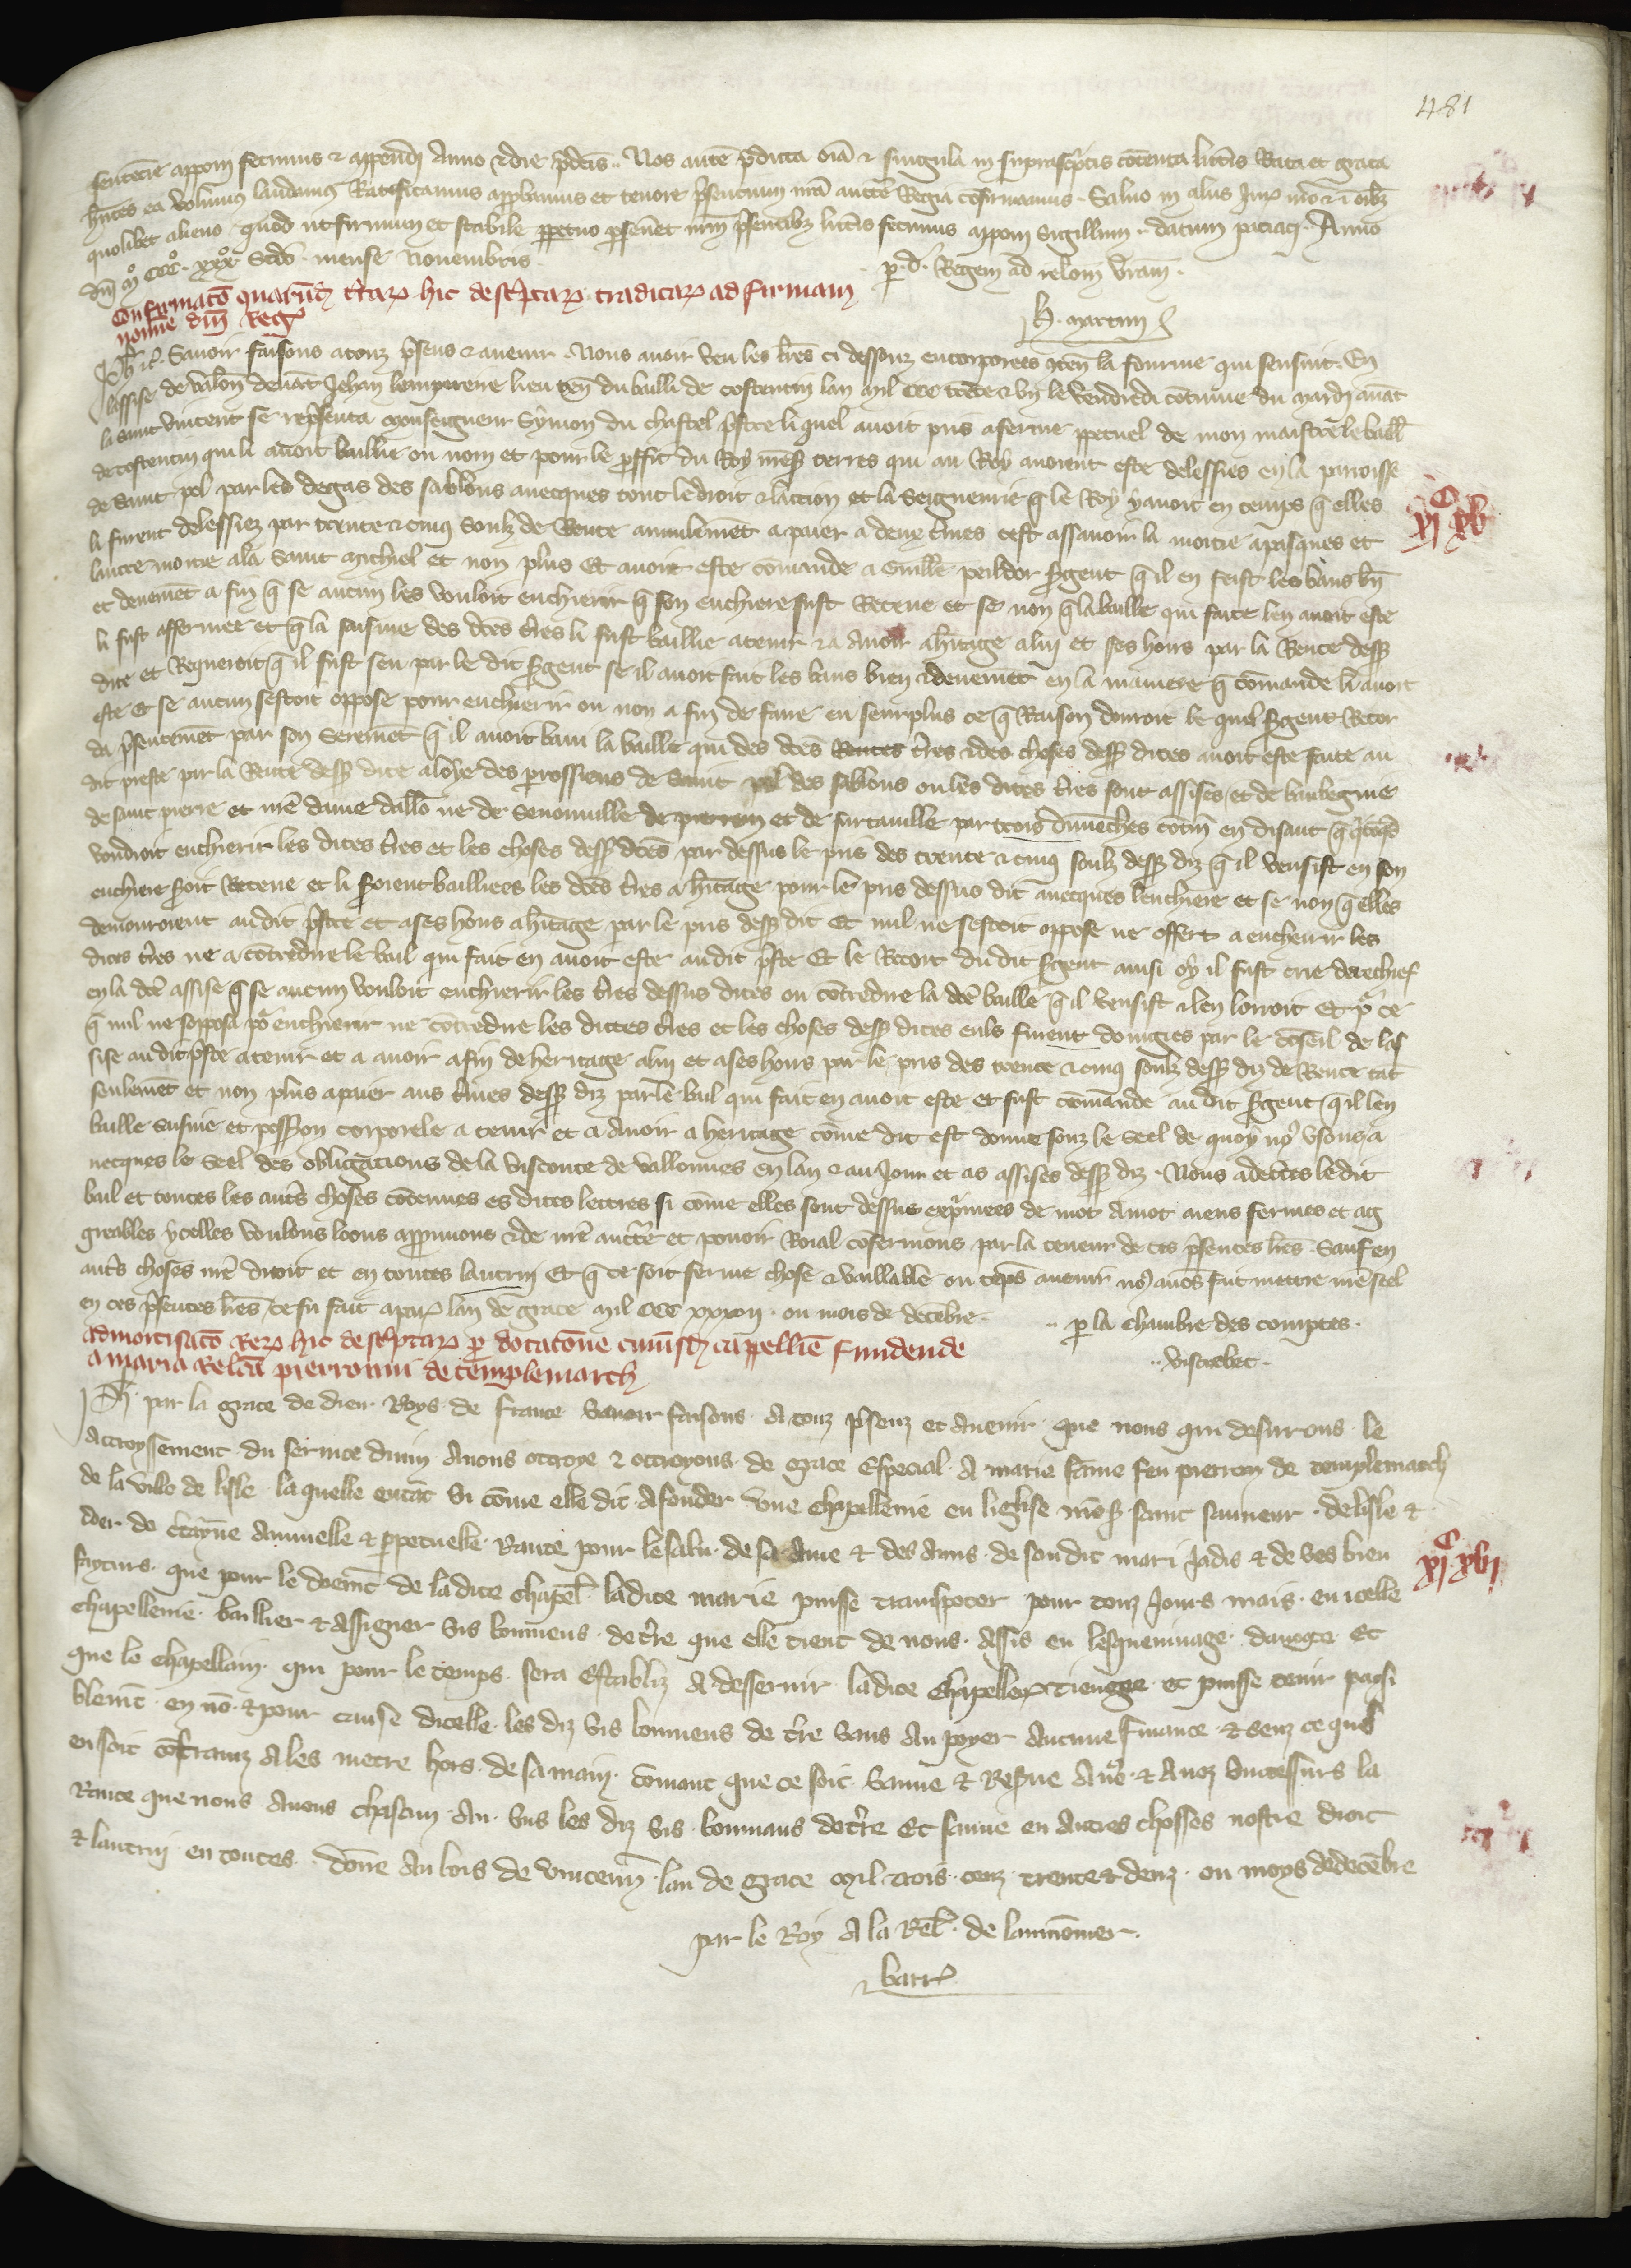 481
sentencie apponi fecimus & appendi Anno & die p̃dcĩs. Nos autẽ p̃dicta oĩa & singula in suprascp̃tis cõtenta lrĩs Rata et grata
hñtes ea volumus laudamus Ratificamus approbamus et tenore p̃sentium nrã auctẽ Regia cõfirmamus. Saluo in aliis Jure nrõ & ĩ oĩbz
quolibet alieno quod ut firmum et stabile ppetuo pseũet nrm̃ p̃sentibz lrĩs fecimus apponi Sigillum. datum parac̃. Anno
dñi mº CCCº. xxxº Scdõ. mense Nouembris.
p. d. Regem ad relõm v̄ram.
H. martin
Confirmatõ quarũdã t̃rarꝝ hic desc̃ptarꝝ traditarꝝ ad firmam
nomine dñi Regꝭ
Ph. & c̃. Sauoir faisons a touz p̃sens & auenir. Nous auoir veu les lr̃es ci dessouz encorporees cõten la fourme qui sensuit. En
lassise de valoñ. deuãt Jehan lempereire lieu teñ du bailli de costentin lan mil CCC trẽte & vn le vendredi cõtinue du mardi auãt
la saint vincent se rep̃senta monseigneur Symon du chastel p̃stre li quel auoit pris a ferme ppetuel de mon maistre le baill̃
de costentin qui li auoit baillie ou nom et pour le proffit du Roy nrẽ sꝭ terres qui au Roy auoient este delessies en la parroisse
de Saint pol par les degas des sablons auecques tout le droit & laction et la Seigneurie q̃ le Roy y auoit en temps q̃ elles
li furent delessiez par trente & cinq soulz de Rente annuelemẽt a paier a deux t̃mes cest assauoir la moitie a pasques et
lautre moitie a la saint michiel et non plus Et auoit este cõmande a Guill̃e peildor s̃gent q̃ il en feist les bans bñ
et deuemẽt a fin q̃ se aucun les vouloit encherir q̃ son enchiere fust Receue et se non q̃ la baille qui faite len auoit este
li fust affermee et q̃ la saisine des dc̃es t̃res li fust baillie a tenir & a Auoir a hr̃itage a lui et ses hoirs par la Rente dessꝭ
dite et Requeroit q̃ il fust seu par le dit s̃gent se il auoit fait les bans bien & deuemẽt en la maniere q̃ cõmande li auoit
este et se aucun sestoit oppose pour encherir ou non a fin de faire en seurplus ce q̃ Raison donroit le quel s̃gent Recor
da p̃sentemẽt par son Seremẽt q̃ il auoit bani la baille qui des dc̃es Rentes t̃res & des choses dessꝭ dites auoit este faite au
dit prestre par la Rente dessꝭ dite a loye des parrossiens de Saint pol des sablons ou les dites t̃res sont assises et de baubegnie
de saint pierre et nrẽ dame dallõ ne de Senouuille de pierrein et de surtauille par trois dimẽches cõtiñ en disant q̃ q̃cõq̃
vondroit encherir les dites t̃res et les choses dessꝭ dc̃es par dessus le pris des trente & cinq soulz dessꝭ diz q̃ il venisist en son
enchiere seroit Receue et li seroient bailliees les dc̃es t̃res a hr̃itage pour le pris dessus dit auecques lenchiere et se non q̃ elles
demouroient audit p̃stre et a ses hoirs a hr̃itage par le pris dessꝭ dit Et nul ne sestoit oppose ne offert a encherir les
dites t̃res ne a cõtredire le bail qui fait en auoit este audit p̃stre Et le Recort du dit s̃gent ainsi oy il fust crie derechief
en la dc̃e assise q̃ se aucun vouloit encherir les t̃res dessus dites ou cõtredire la dc̃e baille q̃ il venisist & len lorroit Et p̃ ce
q̃ nul ne soposa po' encherir ne cõtredire les dictes t̃res et les choses dessꝭ dites euls furent doniugies par le cõseil de las
sise audit p̃stre a tenir et a auoir a fin de heritage a lui et a ses hoirs par le pris des trente & cinq soulz dessꝭ diz de Rente tãt
seulemẽt et non plus a paier aus t̃mes dessꝭ diz par le bail qui fait en auoit este et fust cõmande au dit s̃gent q̃ il len
baille saisine et possꝭion corporele a tenir et a auoir a heritage cõme dit est donne souz le seel de quoy no' vsons a
uecques le seel des obligations de la visconte de vallonnes en lan & au jour et as assises dessꝭ diz. Nous adec̃tes le dit
bail et toutes les aut̃s choses cõtenues es dites lettres si cõme elles sont dessus exp̃mees de mot a mot aiens fermes et ag
greables ycelles voulons loons approuuons & de nrẽ auctẽ et pouoir Roial cõfermons par la teneur de ces p̃sentes lr̃es Sauf en
aut̃s choses nrẽ droit et en toutes lautrui Et q̃ ce soit ferme chose & vaillable ou tẽps auenir no' auõs fait mettre nrẽ seel
en ces p̃sentes lr̃es ce fu fait a parꝭ lan de grace mil CCC xxxii. ou mois de decẽbre.
p la chambre des comptes.
vistrebec.
Admortisatõ Rerꝝ hic desc̃ptarꝝ p dotatõne cuiusdã cappellie fundende
a maria Relcã pierronni de templemarch
Ph. par la grace de dieu Roys de france Sauoir faisons. A touz p̃senz et Auenir. que nous qui desirrons. le
Accroyssement du seruice diuin Auons ottroye & ottroyons. de grace Especial. A marie fãme feu pierron de templemarch
de la ville de lisle. la quelle entãt si cõme elle dit. A fonder vne Chapellenie en leglise mõsꝭ. saint sauueur. de lisle &
der de c̃tayne Annuelle & ppetuelle. Rante pour le salu. de sa Ame & des Ames. de son dit mari Jadis & de ses bien
faycturs. que pour le doem̃t de ladite chapel̃. ladite marie puisse transpoter pour touz Jours mais. en icelle
chapellenie. baillier & Assigner sis bonniens. de t̃re que elle tient de nous. Assis en lesqueminage. dauoge Et
que le chapellain. qui pour le temps. sera Establiz A desseruir ladite chapelle tiengne. et puisse tenir paisi
blem̃t. en nõ. & pour cause dicelle. les diz sis bonniens de t̃re sans An poyer Aucune finance. & senz ce quel
en soit cõtrainz A les metre hors. de sa main. cõmant que ce soit. Sauue & Res̃ue A no'. & A noz successurs la
Rante que nous Auons chascun. An. sus les diz sis. bonnians de t̃re Et sauue en Autres chosses nostre droit
& lautrui. en toutes. dõne Au bois de vincenn̄. lan de grace mil trois. cenz. trente & deuz. ou moys de decẽbre
par le Roy A la Rel̃. de laumõnier.
barrꝭ
C
xi xv
C
xi xvi